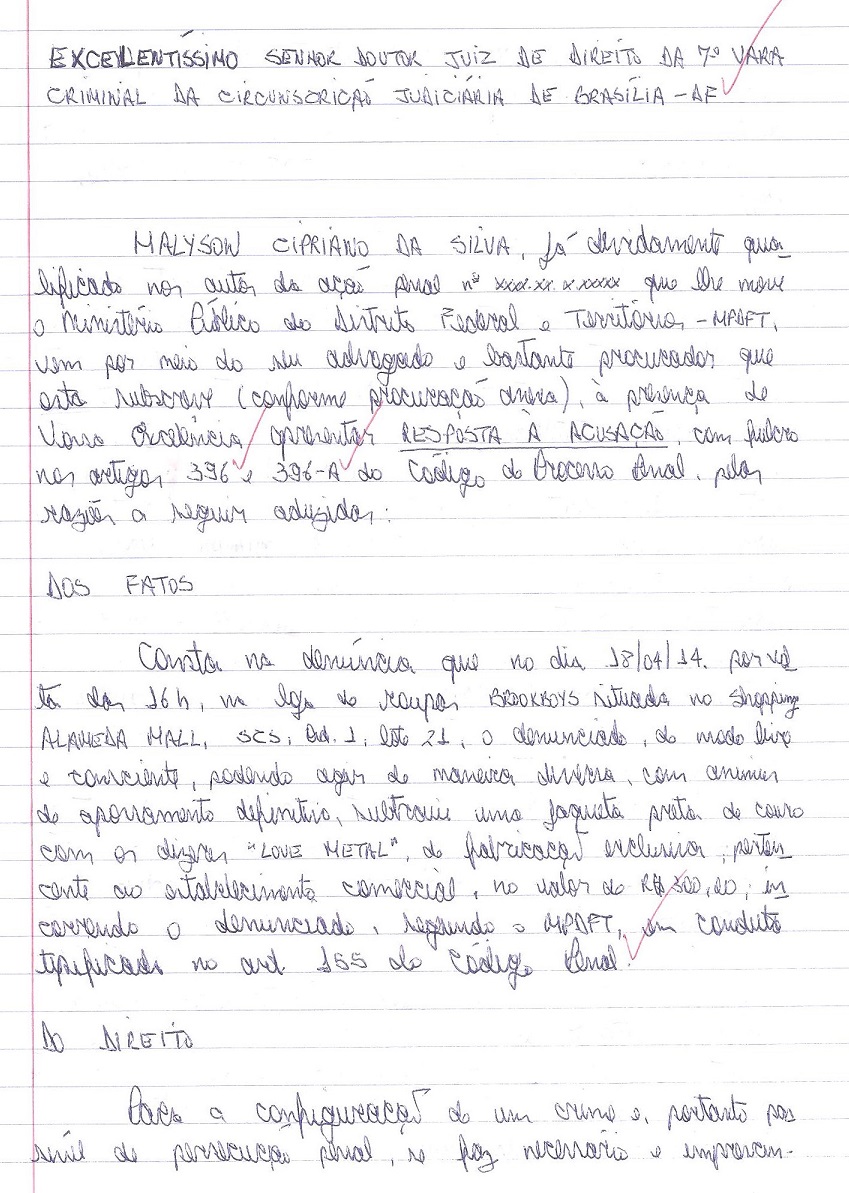 EXCELLENTÍSSIMO SENHOR DOUTOR JUIZ DE DIREITO DA 7ª VARA
CRIMINAL DA CIRCUNSCRIÇÃO JUDICIÁRIA DE BRASÍLIA - DF
MALYSON CIPRIANO DA SILVA, já devidamente qua
lificado nos autos da ação penal nº xxxx.xx.x.xxxxx que lhe move
o Ministério Público do Distrito Federal e Territórios - MPDFT,
vem por meio do seu advogado e bastante procurador que
esta subscreve (conforme procuração anexa), à presença de
Vossa Excelência apresentar RESPOSTA À ACUSAÇÃO, com fulcro
nos artigos 396 e 396-A do Código de Processo Penal, pelas
razões a seguir aduzidas:
DOS FATOS
Consta na denúncia que no dia 18/04/14, por vol
ta das 16h, na loja de roupas BROOKBOYS situada no Shopping
ALAMEDA MALL, SCS, Qd. 1, lote 21, o denunciado, de modo livre
e consciente, podendo agir de maneira diversa, com animus
de apossamento definitivo, subtraiu uma jaqueta preta de couro
com os dizeres "LOVE METAL", de fabricação exclusiva, perten
cente ao estabelecimento comercial, no valor de R$ 300,00, in
correndo o denunciado, segundo o MPDFT, em conduta
tipificada no art. 155 do Código Penal.
DO DIREITO
Para a configuração de um crime e, portanto pas
sível de persecução penal, se faz necessário e imprescin-